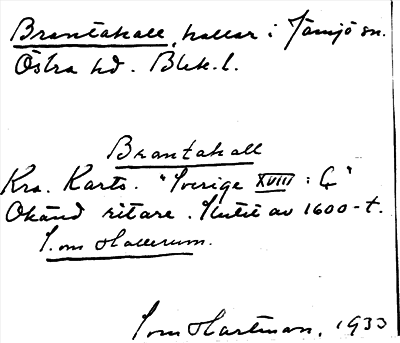 Brantahall, hallar i Jämjö sn.
Östra hd. Blek. l.
Brantahall
Kra. Karta. "Sverige XVIII : C"
Okänd ritare. Slutet av 1600-t.
S. om Hallerum.
Tom Hartman, 1933